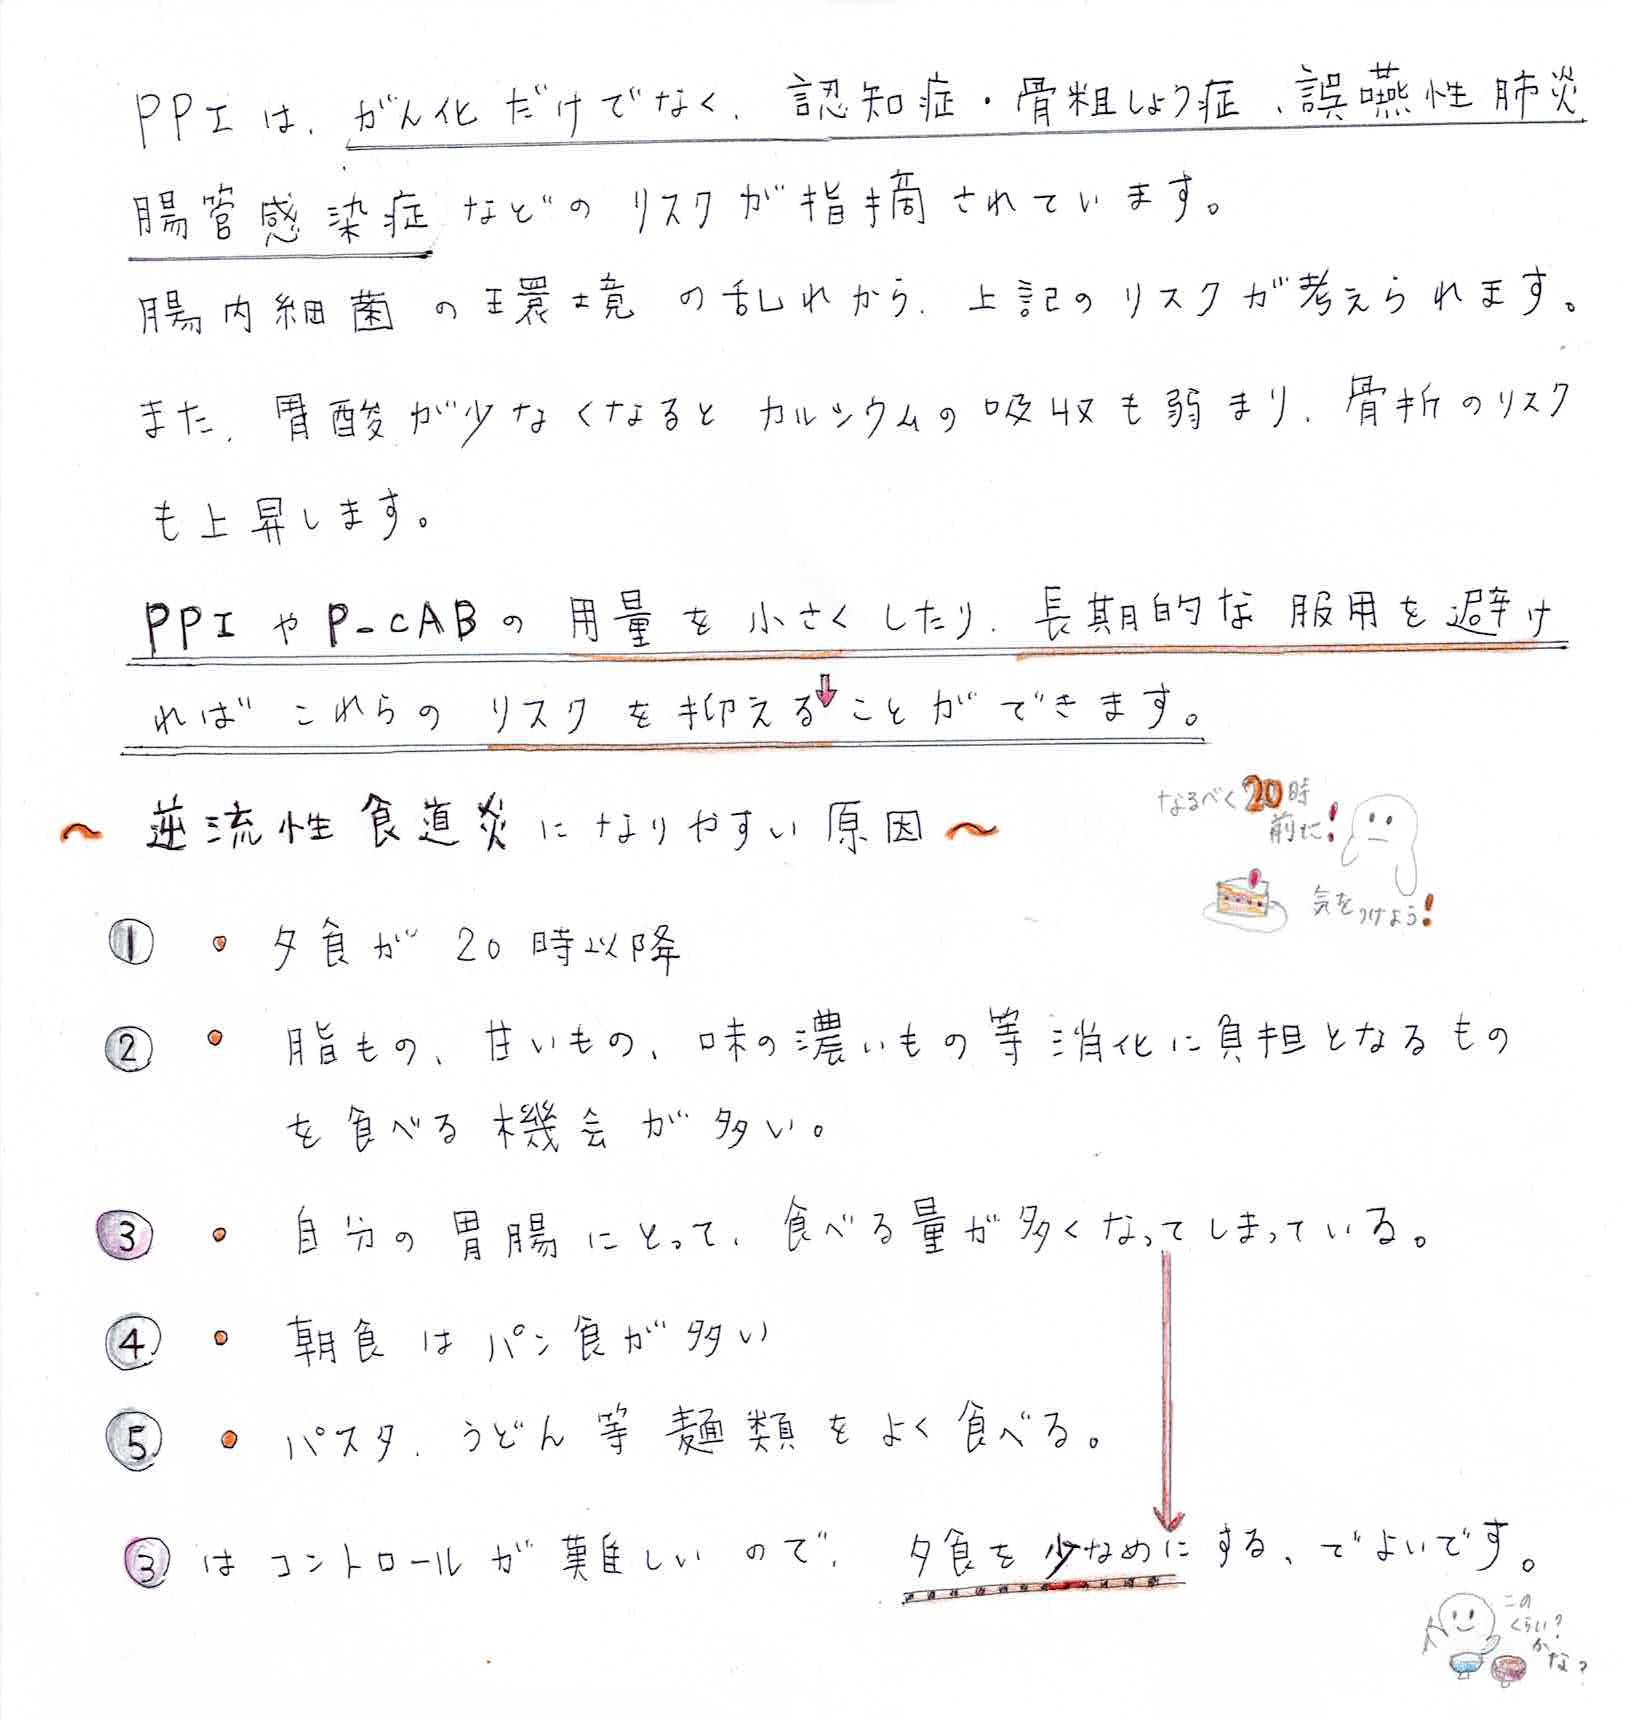 PPIは、がん化だけでなく、認知症・骨粗しょう症、誤嚥性肺炎
腸管感染症などのリスクが指摘されています。
腸内細菌の環境の乱れから、上記のリスクが考えられます。
また、胃酸が少なくなるとカルシウムの吸収も弱まり、骨折のリスク
も上昇します。
PPIやP-CABの用量を小さくしたり、長期的な服用を避け
ればこれらのリスクを抑える↓ことができます。
〜逆流性食道炎になりやすい原因〜
なるべく20時
前に!
気をつけよう!
① • 夕食が20時以降
② • 脂もの、甘いもの、味の濃いもの等消化に負担となるもの
を食べる機会が多い。
③ • 自分の胃腸にとって、食べる量が多くなってしまっている。
④ • 朝食はパン食が多い
⑤ • パスタ、うどん等麺類をよく食べる。
③はコントロールが難しいので、夕食を少なめにする、でよいです。
この
くらい?
か
な?